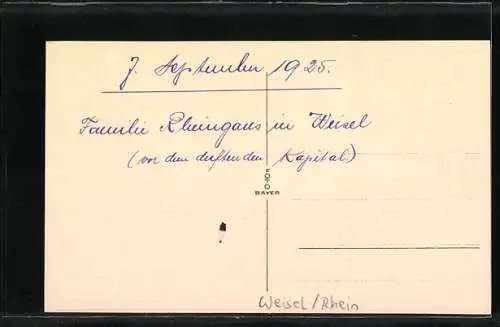 7. September 1925.
Familie Rheingans in Weisel
(vor dem duftenden Kapital)
FOTO
BAYER
Weisel/Rhein